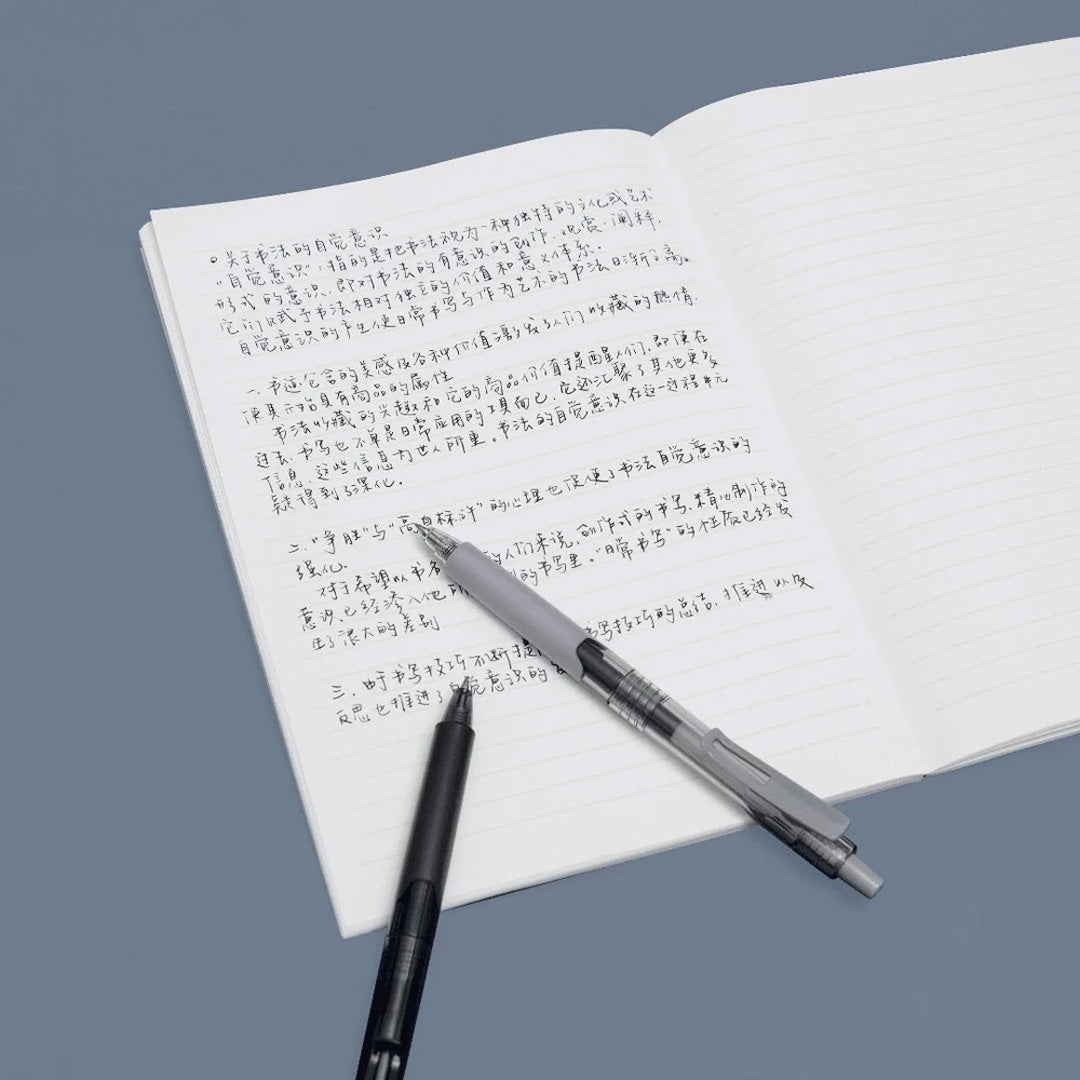 关于书法的自觉意识
“自觉意识”:指的是把书法视为一种独特的文化或艺术
形式的意识,即对书法的有意识的创作、观赏、阐释,
它们赋予书法相对独立的价值和意义体系。
自觉意识的产生使日常书写与作为艺术的书法日渐分离。
一、书迹包含的美感及各种价值激发了人们收藏的热情.
使其开始具有商品的属性
书法收藏的兴趣和它的商品价值提醒人们,即使在
过去,书写也不单是日常应用的工具而已,它还汇聚了其他更多
信息,这些信息为世人所重。书法的自觉意识在这一过程中无
疑得到了深化.
二、“争胜”与“高自标许”的心理也促使了书法自觉意识的
强化.
对于希望以书名 的人们来说,创作式的书写、精心制作的
意识已经渗入他 的书写里。“日常书写”的性质已经发
生了很大的差别
三、由于书写技巧不断提 书写技巧的总结、推进以及
反思也推进了自觉意识的